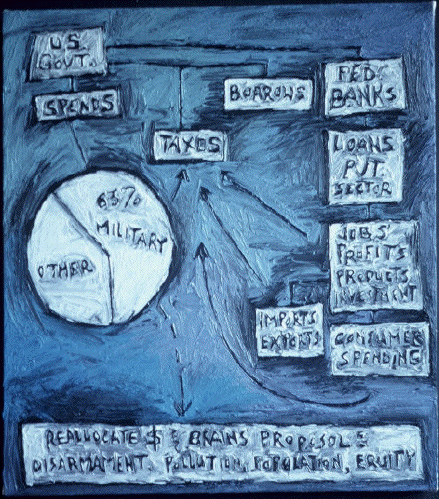 U.S.
GOVT.
SPENDS
BORROWS
FED
BANKS
TAXES
LOANS
PVT.
SECTOR
63%
MILITARY
OTHER
JOBS
PROFITS
PRODUCTS
INVETMENT
IMPORTS
EXPORTS
CONSUMER
SPENDING
REALLOCATE $ & BRAINS PROPOSOL &
DISARMAMENT, POLLUTION, POPULATION, EQUITY